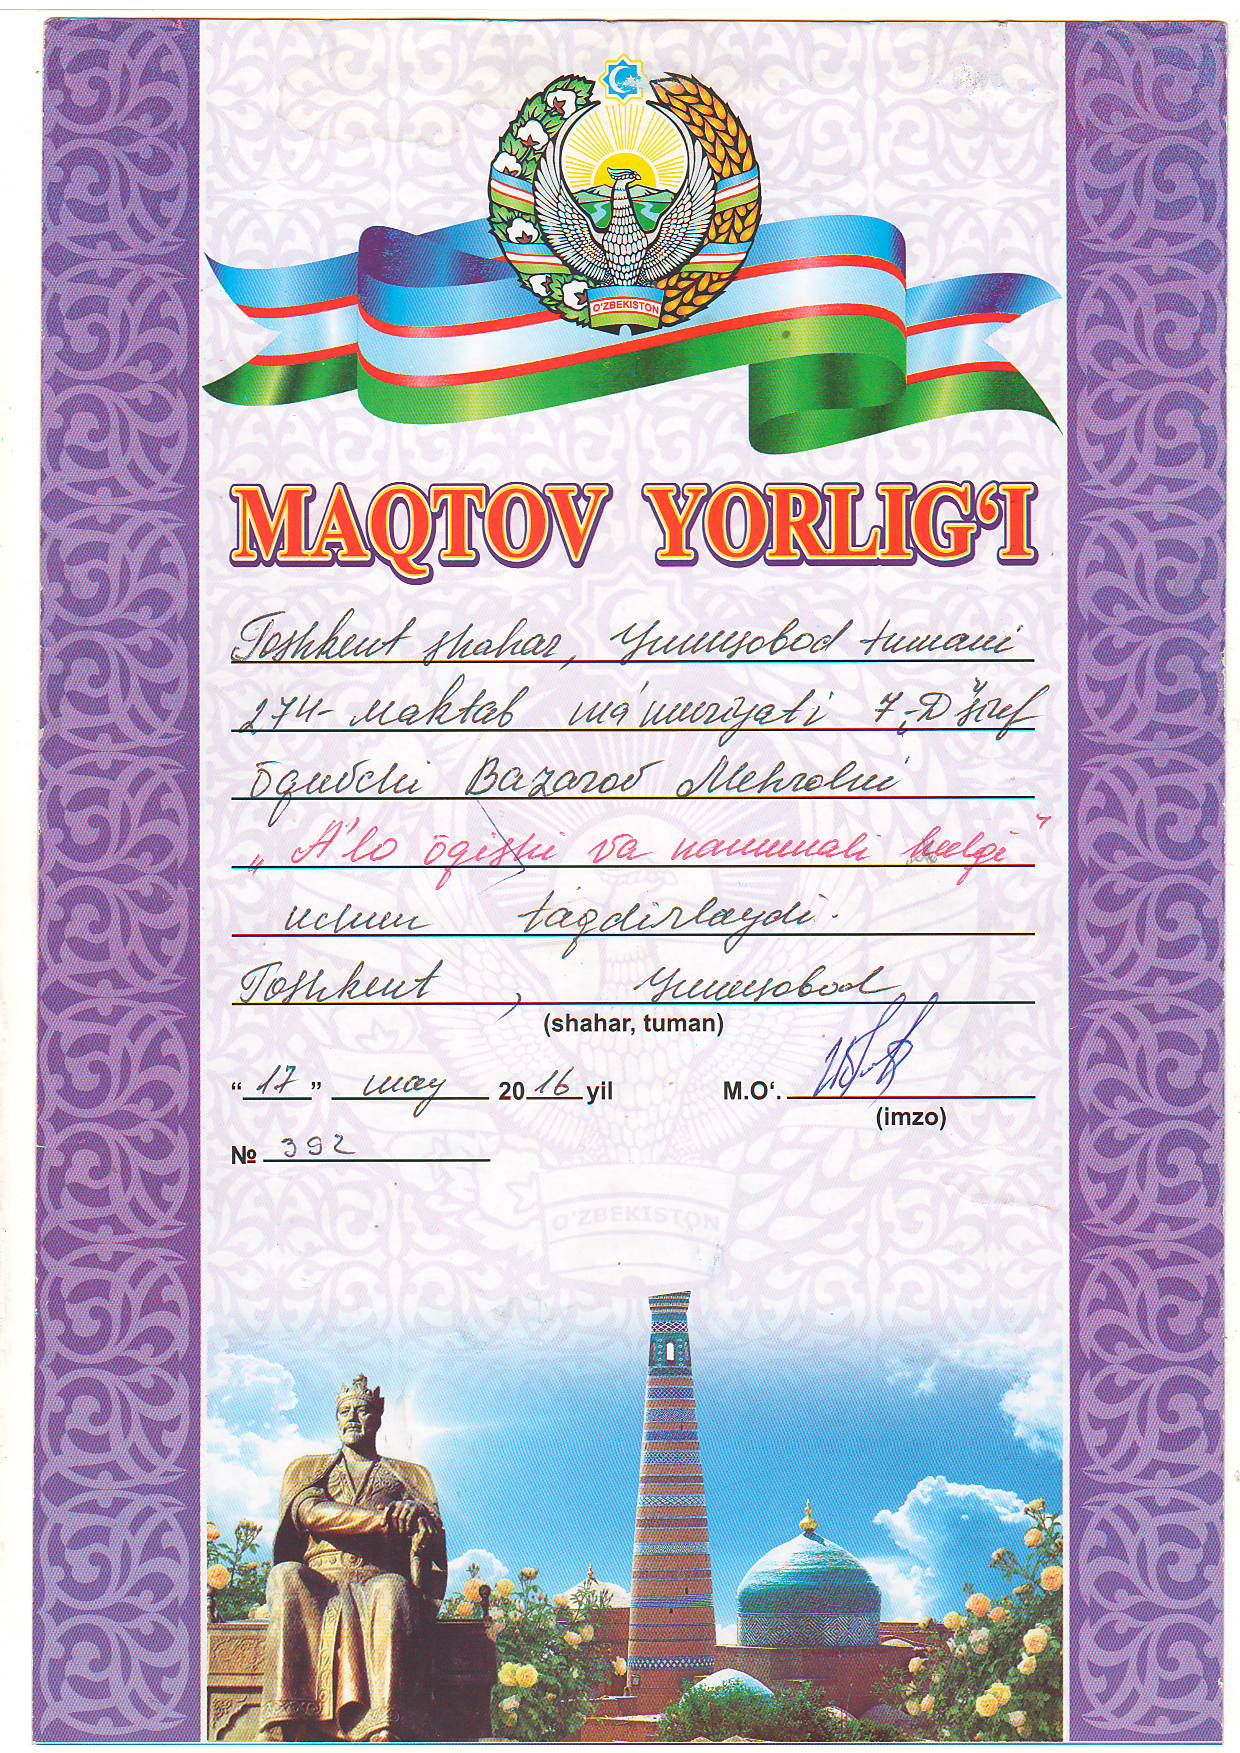 O'ZBEKISTON
MAQTOV YORLIG‘I
Toshkent shahar, Yunusobod tumani
274-maktab ma'muriyati 7-"D" sinf
ōquvchi Bazarov Mehrolni
„A'lo ōqishi va namunali hulqi"
uchun taqdirlaydi.
Toshkent , Yunusobod
(shahar, tuman)
“17” may 2016 yil M.O‘.
(imzo)
№ 392
O'ZBEKISTON